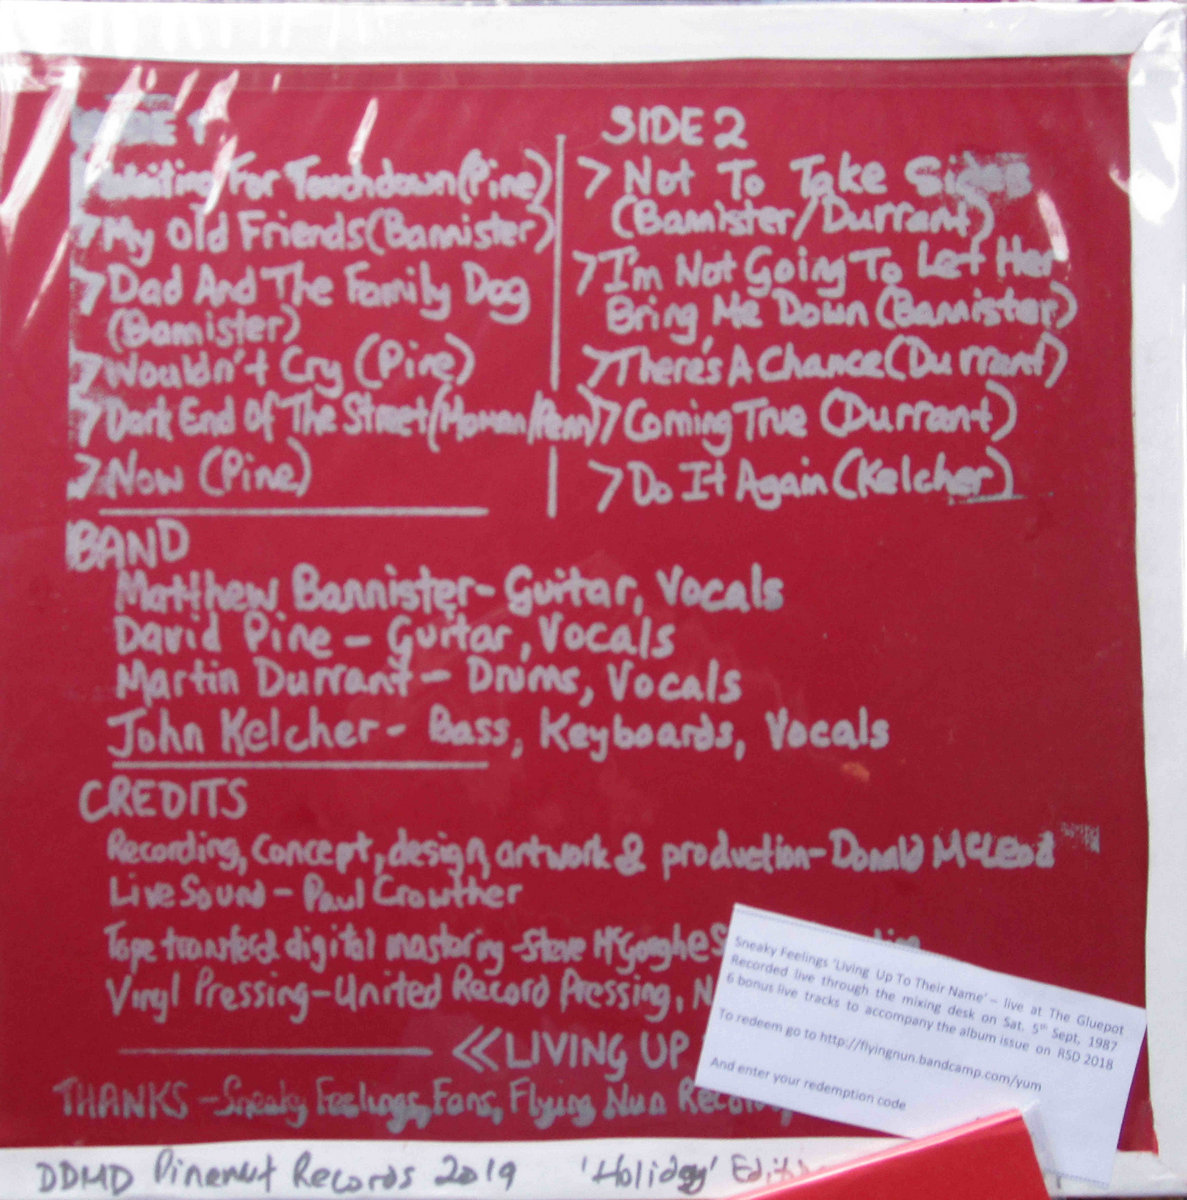 SIDE 1
Waiting For Touchdown (Pine)
> My Old Friends (Bannister)
> Dad And The Family Dog
(Bannister)
> Wouldn't Cry (Pine)
> Dark End Of The Street (Moman/Penn)
> Now (Pine)
SIDE 2
> Not To Take Sides
(Bannister/Durrant)
> I'm Not Going To Let Her
Bring Me Down (Bannister)
> There's A Chance (Durrant)
> Coming True (Durrant)
> Do It Again (Kelcher)
BAND
Matthew Bannister - Guitar, Vocals
David Pine - Guitar, Vocals
Martin Durrant - Drums, Vocals
John Kelcher - Bass, Keyboards, Vocals
CREDITS
Recording, concept, design, artwork & production - Donald McLeod
Live Sound - Paul Crowther
Tape transfer & digital mastering - Steve McGonghe
Vinyl Pressing - United Record Pressing, N
<< LIVING UP
THANKS - Sneaky Feelings, Fans, Flying Nun
DDMD Pinenut Records 2019 'Holiday'
Sneaky Feelings 'Living Up To Their Name' – live at The Gluepot
Recorded live through the mixing desk on Sat. 5th Sept, 1987
6 bonus live tracks to accompany the album issue on RSD 2018
To redeem go to http://flyingnun.bandcamp.com/yum
And enter your redemption code